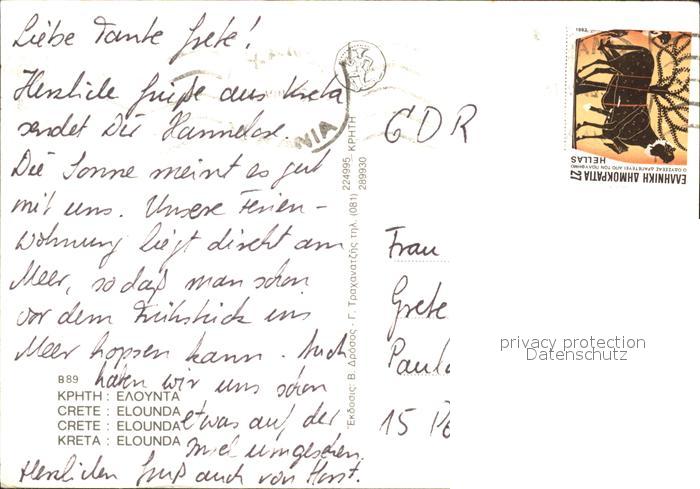 Liebe Tante Grete!
Herzliche Grüße aus Kreta
sendet Dir Hannelore.
Die Sonne meint es gut
mit uns. Unsere Ferien-
wohnung liegt direkt am
Meer, so daß man schon
vor dem Frühstück ins
Meer hopsen kann. Auch
haben wir uns schon
etwas auf der
Insel umgesehen.
Herzlichen Gruß auch von Horst.
B89
ΚΡΗΤΗ : ΕΛΟΥΝΤΑ
CRETE : ELOUNDA
CRETE : ELOUNDA
KRETA : ELOUNDA
Έκδοσις: Β. Δρόσος - Γ. Τραχανατζής τηλ. (081) 224995 289930 ΚΡΗΤΗ
NIA
GDR
Frau
Grete
Paul
15 Po
ΕΛΛΗΝΙΚΗ ΔΗΜΟΚΡΑΤΙΑ 27
HELLAS
Ο ΟΔΥΣΣΕΑΣ ΔΡΑΠΕΤΕΥΕΙ ΑΠΟ ΤΟΝ ΠΟΛΥΦΗΜΟ
privacy protection
Datenschutz